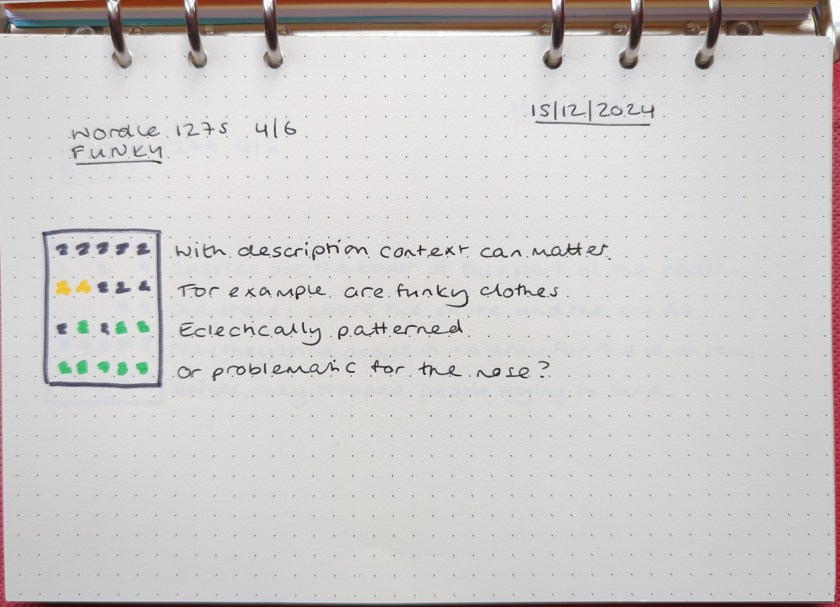 15/12/2024
Wordle 1275 4/6
FUNKY
With description context can matter.
For example are funky clothes
Eclectically patterned
Or problematic for the nose?